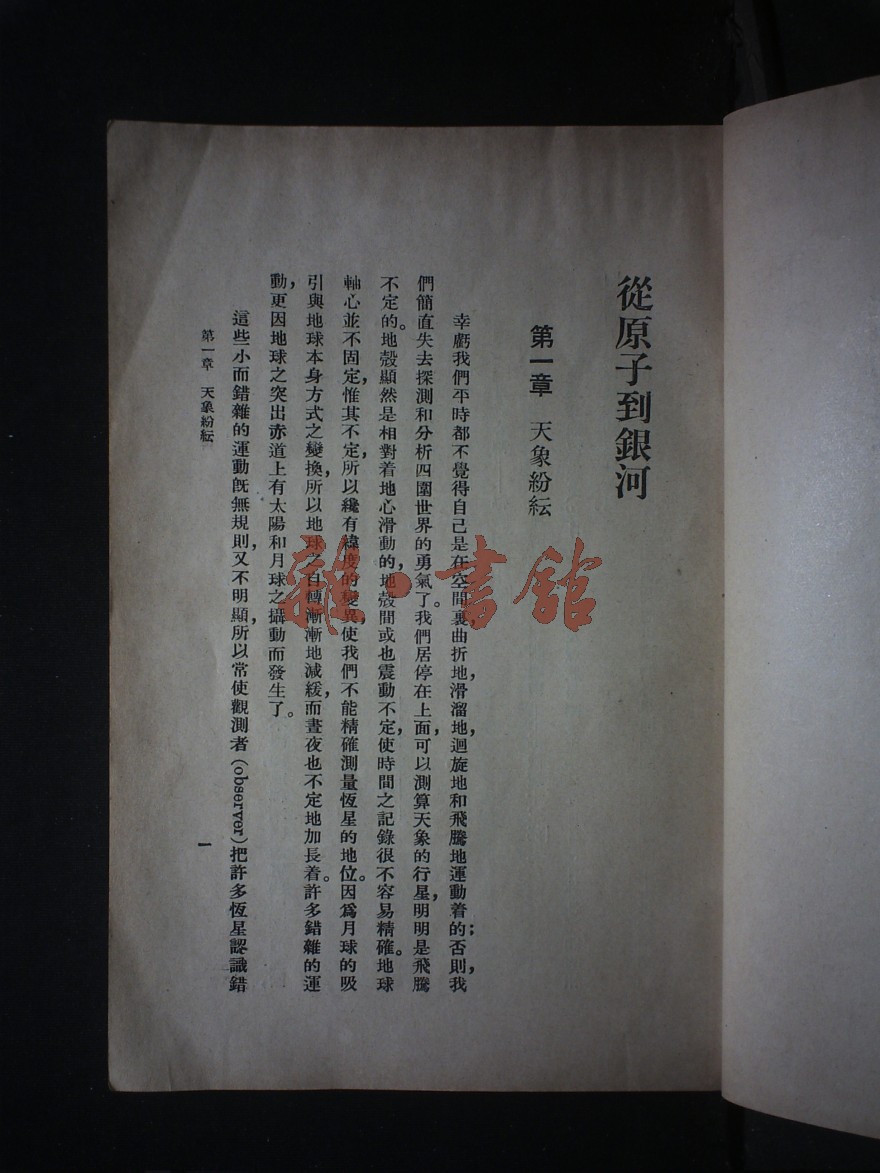 從原子到銀河
第一章 天象紛紜
幸虧我們平時都不覺得自己是在空間裏曲折地,滑溜地,迴旋地和飛騰地運動着的;否則,我
們簡直失去探測和分析四圍世界的勇氣了。我們居停在上面,可以測算天象的行星,明明是飛騰
不定的。地殼顯然是相對着地心滑動的,地殼間或也震動不定,使時間之記錄很不容易精確。地球
軸心並不固定,惟其不定,所以纔有緯度的變異,使我們不能精確測量恆星的地位。因爲月球的吸
引與地球本身方式之變換,所以地球之自轉漸漸地減緩,而晝夜也不定地加長着。許多錯雜的運
動,更因地球之突出赤道上有太陽和月球之攝動而發生了。
這些小而錯雜的運動既無規則,又不明顯,所以常使觀測者(observer)把許多恆星認識錯
第一章 天象紛紜
一
雜·書館